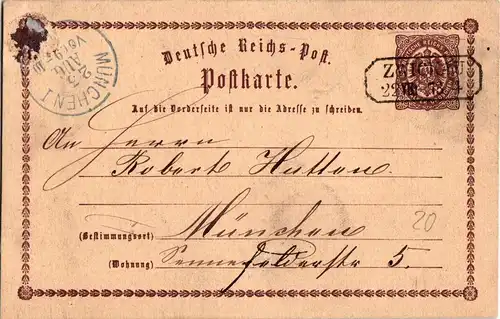 Deutsche Reichs-Post.
Postkarte.
Auf die Vorderseite ist nur die Adresse zu schreiben.
MÜNCHEN I
23
AUG
An Herrn
Robert Hutton
(Bestimmungsort) München
(Wohnung) Sennefelderstr 5.
20